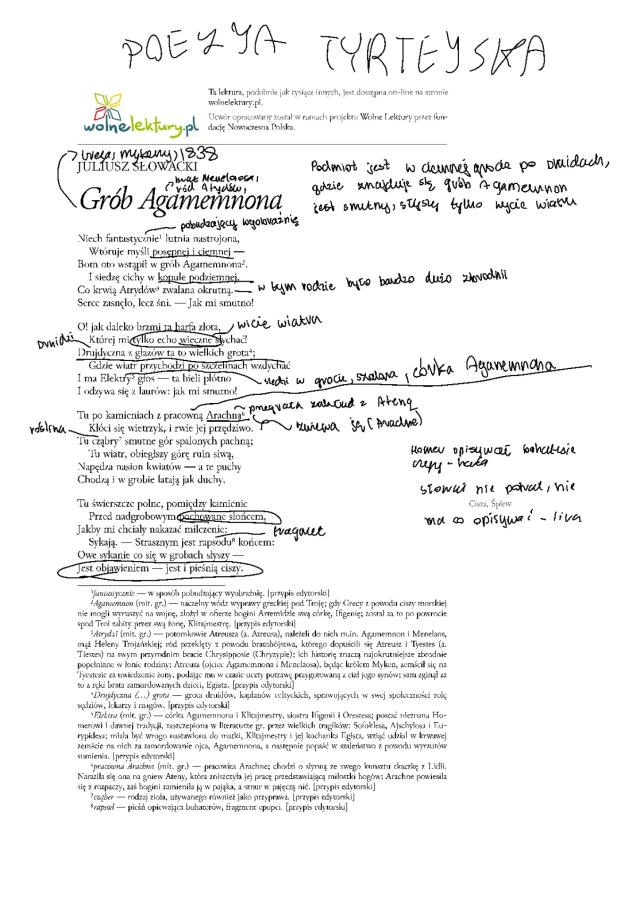 POEZYA TYRTEJSKA
Ta lektura, podobnie jak tysiące innych, jest dostępna on-line na stronie
wolnelektury.pl.
Utwór opracowany został w ramach projektu Wolne Lektury przez fun-
dację Nowoczesna Polska.
wolnelektury.pl
mykeny, 1838
JULIUSZ SŁOWACKI
mąż Menelaosa,
ród Atrydów,
Grób Agamemnona
Podmiot jest w ciemnej grocie po Druidach,
gdzie znajduje się grób Agamemnon
jest smutny, słyszy tylko wycie wiatru
pobudzający wyobraźnię
Niech fantastycznie¹ lutnia nastrojona,
Wtóruje myśli posępnej i ciemnej —
Bom oto wstąpił w grób Agamemnona².
I siedzę cichy w kopule podziemnej,
Co krwią Atrydów³ zwalana okrutną.
w tym rodzie było bardzo dużo zbrodnii
Serce zasnęło, lecz śni. — Jak mi smutno!
O! jak daleko brzmi ta harfa złota,
wicie wiatru
Której mi tylko echo wieczne słychać!
Druidzi
Drujdyczna z głazów ta to wielkich grota⁴;
Gdzie wiatr przychodzi po szczelinach wzdychać
I ma Elektry⁵ głos — ta bieli płótno
siedzi w grocie, szalona, córka Agamemnona
I odzywa się z laurów: jak mi smutno!
przegrała zakład z Ateną
Tu po kamieniach z pracowną Arachną⁶
roślina
Kłóci się wietrzyk, i rwie jej przędziwo.
Tu cząbry⁷ smutne gór spalonych pachną;
Tu wiatr, obiegłszy górę ruin siwą,
Napędza nasion kwiatów — a te puchy
Chodzą i w grobie latają jak duchy.
Homer opisywał
słowac nie potraf, nie
Cisza, Śpiew
ma co opisywać - lira
Tu świerszcze polne, pomiędzy kamienie
Przed nadgrobowym pochowane słońcem,
Jakby mi chciały nakazać milczenie:
Sykają. — Strasznym jest rapsodu⁸ końcem:
Owe sykanie co się w grobach słyszy —
Jest objawieniem — jest i pieśnią ciszy.
¹fantastycznie — w sposób pobudzający wyobraźnię. [przypis edytorski]
²Agamemnon (mit. gr.) — naczelny wódz wyprawy greckiej pod Troję; gdy Grecy z powodu ciszy morskiej
nie mogli wyruszyć na wojnę, złożył w ofierze bogini Artemidzie swą córkę, Ifigenię; został za to po powrocie
spod Troi zabity przez swą żonę, Klitajmestrę. [przypis edytorski]
³Atrydzi (mit. gr.) — potomkowie Atreusza (a. Atreusa), należeli do nich m.in. Agamemnon i Menelaos,
mąż Heleny Trojańskiej; ród przeklęty z powodu bratobójstwa, którego dopuścili się Atreusz i Tyestes (a.
Tiestes) na swym przyrodnim bracie Chrysipposie (Chryzypie); ich historię znaczą najokrutniejsze zbrodnie
popełniane w łonie rodziny: Atreusz (ojciec Agamemnona i Menelaosa), będąc królem Myken, zemścił się na
Tyestesie za uwiedzenie żony, podając mu w czasie uczty potrawę przygotowaną z ciał jego synów; sam zginął za
to z ręki brata zamordowanych dzieci, Egista. [przypis edytorski]
⁴Drujdyczna (...) grota — grota druidów, kapłanów celtyckich, sprawujących w swej społeczności rolę
sędziów, lekarzy i magów. [przypis edytorski]
⁵Elektra (mit. gr.) — córka Agamemnona i Klitajmestry, siostra Ifigenii i Orestesa; postać nieznana Ho-
merowi i dawnej tradycji, zaszczepiona w literaturze gr. przez wielkich tragików: Sofoklesa, Ajschylosa i Eu-
rypidesa; miała być wrogo nastawiona do matki, Klitajmestry i jej kochanka Egista, wziąć udział w krwawej
zemście na nich za zamordowanie ojca, Agamemnona, a następnie popaść w szaleństwo z powodu wyrzutów
sumienia. [przypis edytorski]
⁶pracowna Arachna (mit. gr.) — pracowita Arachne; chodzi o słynną ze swego kunsztu tkaczkę z Lidii.
Naraziła się ona na gniew Ateny, która zniszczyła jej pracę przedstawiającą miłostki bogów; Arachne powiesiła
się z rozpaczy, zaś bogini zamieniła ją w pająka, a sznur w pajęczą nić. [przypis edytorski]
⁷cząber — rodzaj zioła, używanego również jako przyprawa. [przypis edytorski]
⁸rapsod — pieśń opiewająca bohaterów, fragment epopei. [przypis edytorski]